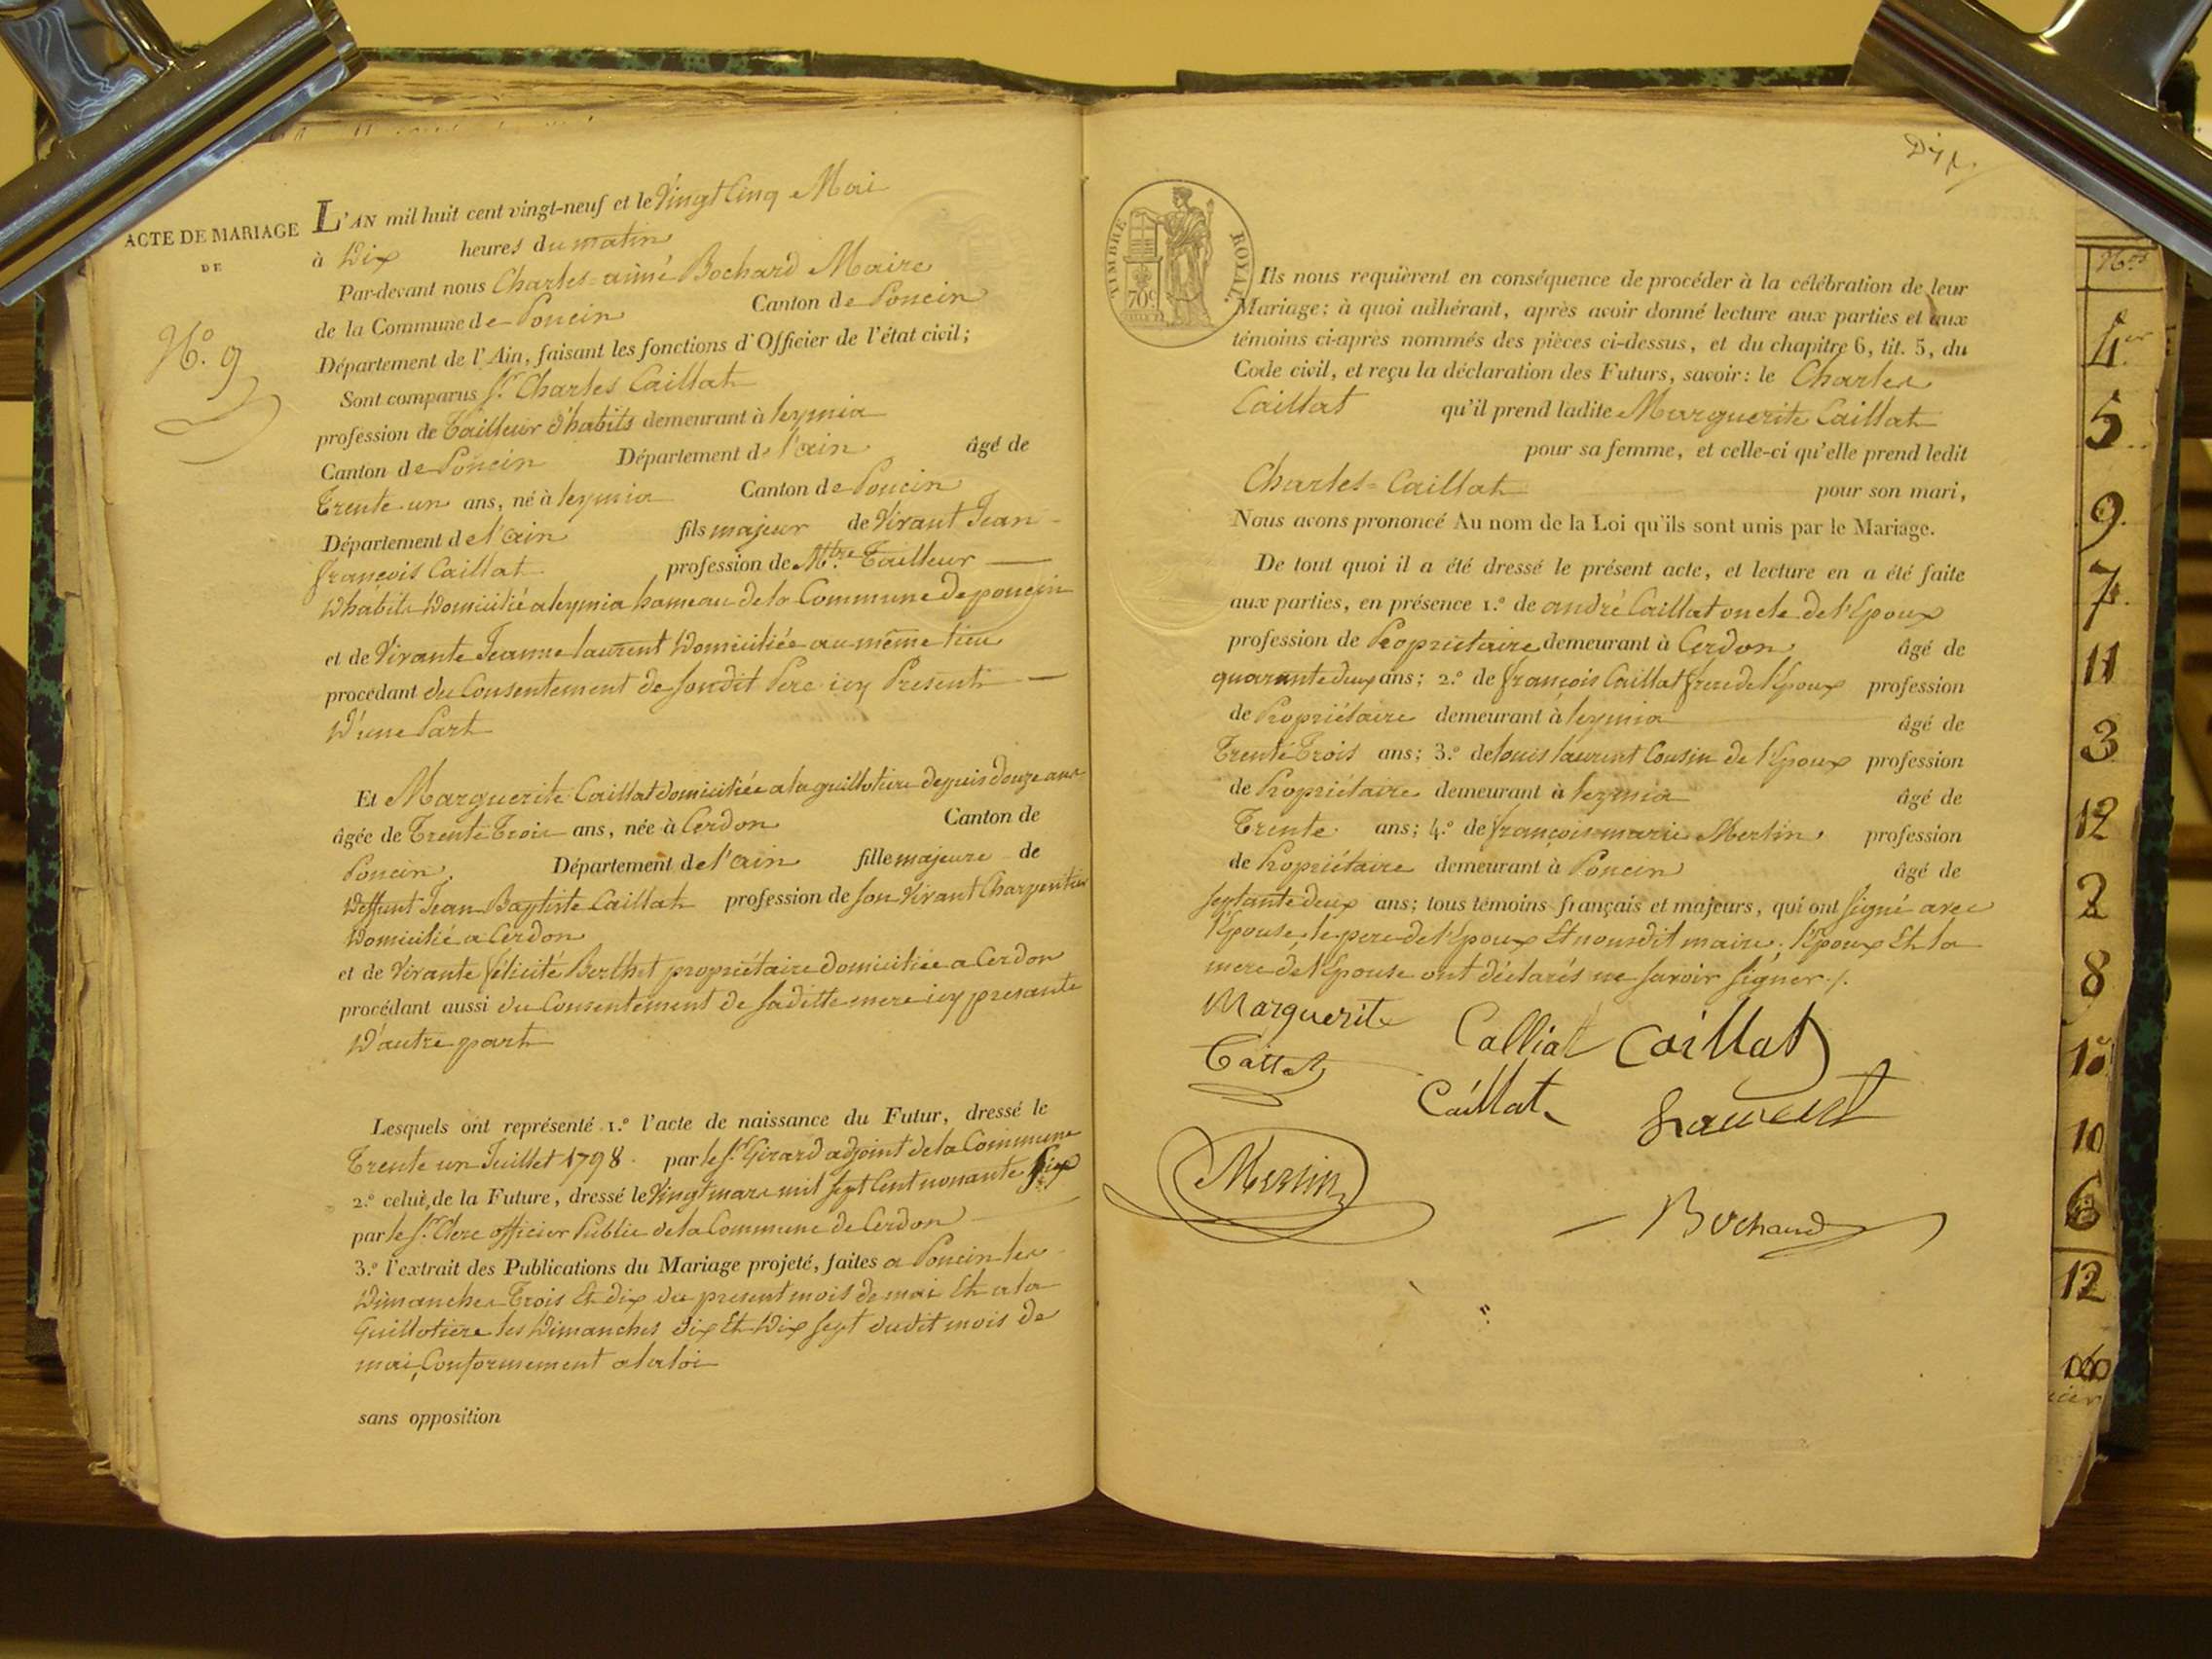 ACTE DE MARIAGE
DE
N.º 9
L'AN mil huit cent vingt-neuf et le Vingt Cinq Mai
à Dix heures du matin
Par-devant nous Charles-aimé Bochard Maire
de la Commune de Poncin Canton de Poncin
Département de l'Ain, faisant les fonctions d'Officier de l'état civil;
Sont comparus Sr. Charles Caillat
profession de Tailleur d'habits demeurant à leymia
Canton de Poncin Département de l'ain âgé de
Trente un ans, né à leymia Canton de Poncin
Département de l'ain fils majeur de Vivant Jean
françois Caillat profession de Mtre Tailleur
D'habits Domicilié a leymia hameau de la Commune de poncin
et de Vivante Jeanne laurent Domiciliée au même lieu
procédant du Consentement de Sondit Pere icy Present
D'une Part
Et Marguerite Caillat domiciliée a la guillotiere depuis douze ans
âgée de Trente Trois ans, née à Cerdon Canton de
Poncin Département de l'ain fille majeure de
Deffunt Jean Baptiste Caillat profession de Son Vivant Charpentier
Domicilié a Cerdon
et de Vivante félicité Berthet propriétaire domiciliée a Cerdon
procédant aussi du Consentement de Saditte mere icy presante
D'autre part
Lesquels ont représenté 1.º l'acte de naissance du Futur, dressé le
Trente un Juillet 1798. par le Sr. Girard adjoint de la Commune
2.º celui de la Future, dressé le Vingt mars mil Sept Cent nonante Six
par le Sr. Clerc officier Public de la Commune de Cerdon
3.º l'extrait des Publications du Mariage projeté, faites a Poncin les
Dimanches Trois Et dix du present mois de mai Et a la
Guillotiere les Dimanches dix Et Dix Sept dudit mois de
mai, Conformement a la loi
sans opposition
TIMBRE ROYAL
70c
Ils nous requièrent en conséquence de procéder à la célébration de leur
Mariage: à quoi adhérant, après avoir donné lecture aux parties et aux
témoins ci-après nommés des pièces ci-dessus, et du chapitre 6, tit. 5, du
Code civil, et reçu la déclaration des Futurs, savoir: le Charles
Caillat qu'il prend ladite Marguerite Caillat
pour sa femme, et celle-ci qu'elle prend ledit
Charles-Caillat pour son mari,
Nous avons prononcé Au nom de la Loi qu'ils sont unis par le Mariage.
De tout quoi il a été dressé le présent acte, et lecture en a été faite
aux parties, en présence 1.º de andré Caillat oncle de l'Epoux
profession de Propriétaire demeurant à Cerdon âgé de
quarante deux ans; 2.º de françois Caillat frere de l'Epoux profession
de Propriétaire demeurant à leymia âgé de
Trente Trois ans; 3.º de louis laurent Cousin de l'Epoux profession
de Propriétaire demeurant à leymia âgé de
Trente ans; 4.º de françois marie Merlin profession
de Propriétaire demeurant à Poncin âgé de
Septante deux ans; tous témoins français et majeurs, qui ont Signé avec
l'Epouse, le pere de l'Epoux Et nousdit maire; l'Epoux Et la
mere de l'Epouse ont déclarés ne Savoir Signer ./.
Marguerite Calliat Caillat
Caillat Laurent
Merlin
Bochard
Nos
4
5
9
7
11
3
12
2
8
10
10
6
12